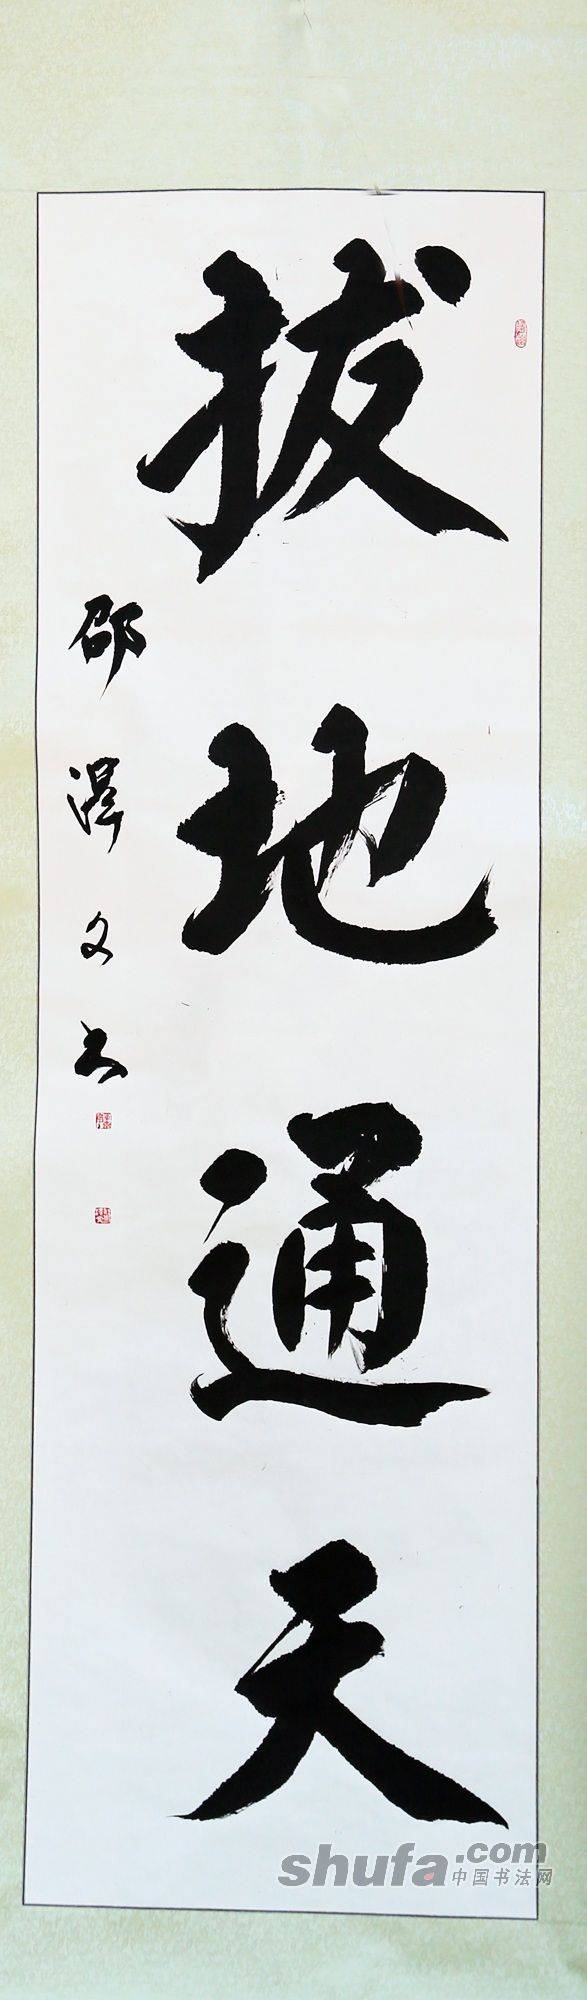 拔地通天
邵泽文书
shufa.com
中国书法网